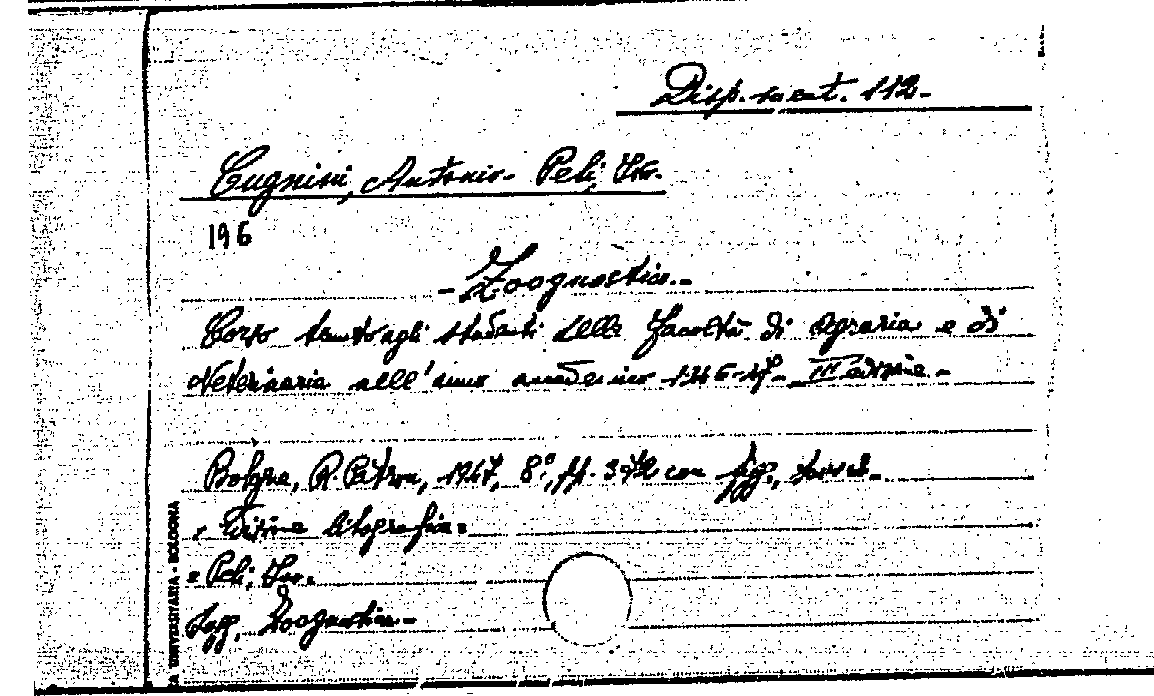 Disp. scient. 112.
Cugnini, Antonio - Peli, Iro.
196
- Zoognostica. -
Corso tenuto agli studenti delle Facoltà di Agraria e di
Veterinaria nell'anno accademico 1946-47. III edizione. -
Bologna, R. Pàtron, 1947, 8°, pp. 372 con figg.,
Edizione litografica.
= Peli,
Sogg. Zoognostica. -
TA UNIVERSITARIA - BOLOGNA